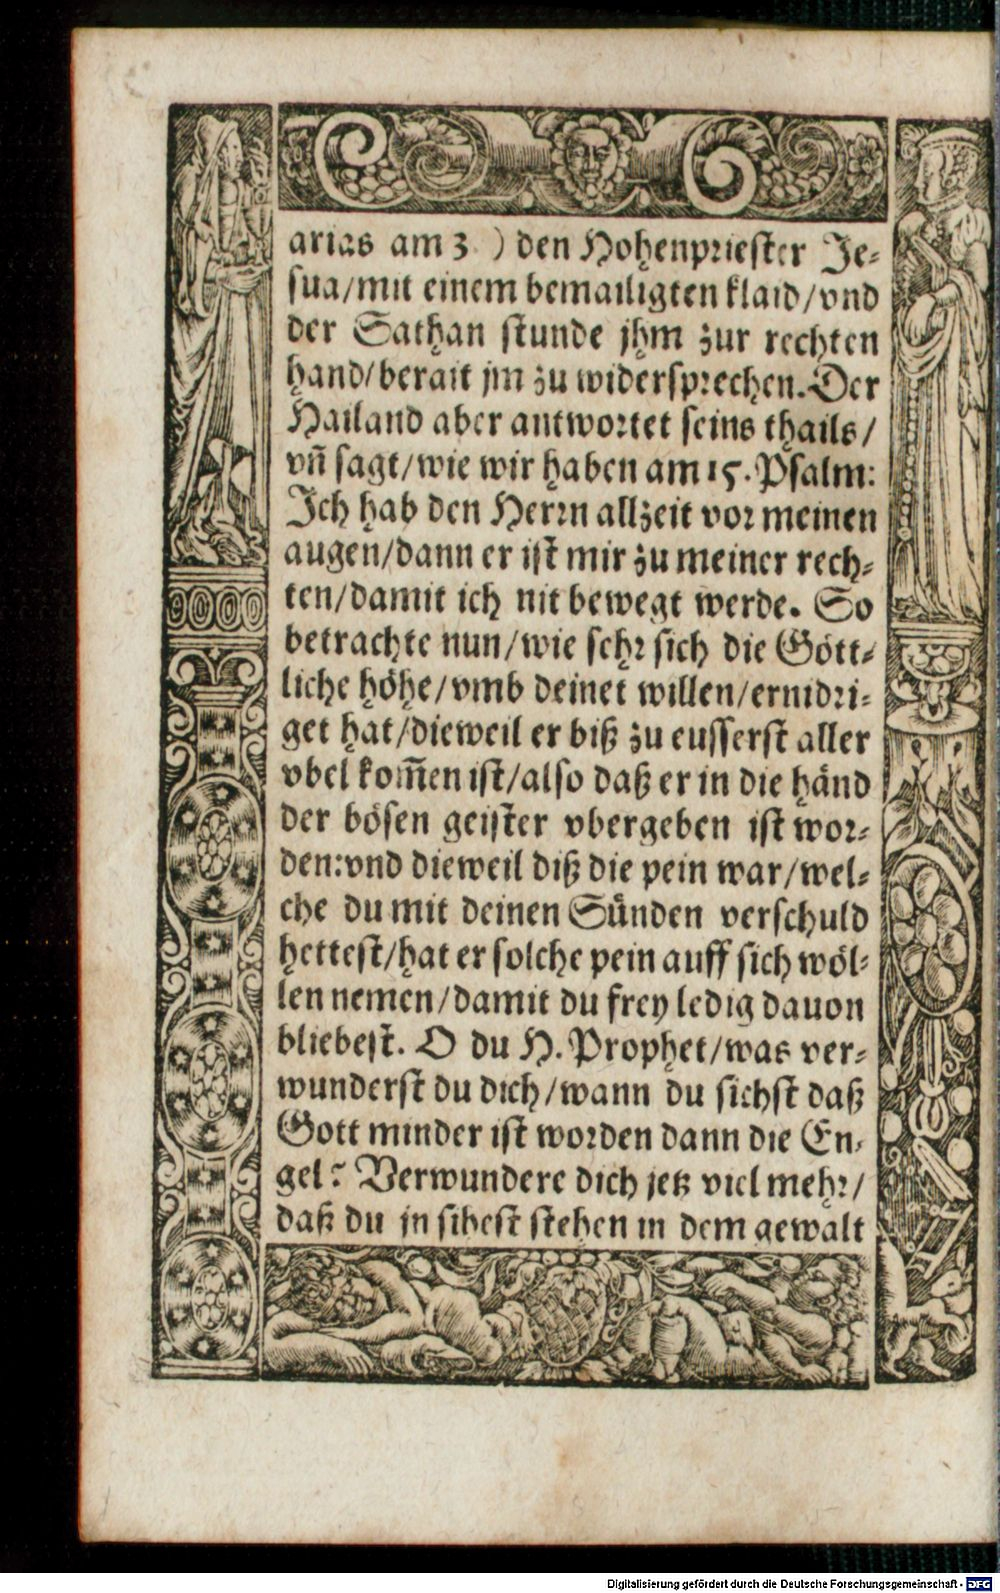 arias am 3 ) den Hohenpriester Je⸗
sua/mit einem bemailigten klaid/vnd
der Sathan stunde jhm zur rechten
hand/berait jm zu widersprechen. Der
Hailand aber antwortet seins thails/
vñ sagt/wie wir haben am 15. Psalm:
Ich hab den Herrn allzeit vor meinen
augen/dann er ist mir zu meiner rech⸗
ten/damit ich nit bewegt werde. So
betrachte nun/wie sehr sich die Gött⸗
liche höhe/vmb deinet willen/ernidri⸗
get hat/dieweil er biß zu eusserst aller
vbel kom̃en ist/also daß er in die händ
der bösen geister vbergeben ist wor⸗
den:vnd dieweil diß die pein war/wel⸗
che du mit deinen Sünden verschuld
hettest/hat er solche pein auff sich wöl⸗
len nemen/damit du frey ledig dauon
bliebest. O du H. Prophet/was ver⸗
wunderst du dich/wann du sichst daß
Gott minder ist worden dann die En⸗
gel? Verwundere dich jetz viel mehr/
daß du jn sihest stehen in dem gewalt
Digitalisierung gefördert durch die Deutsche Forschungsgemeinschaft - DFG